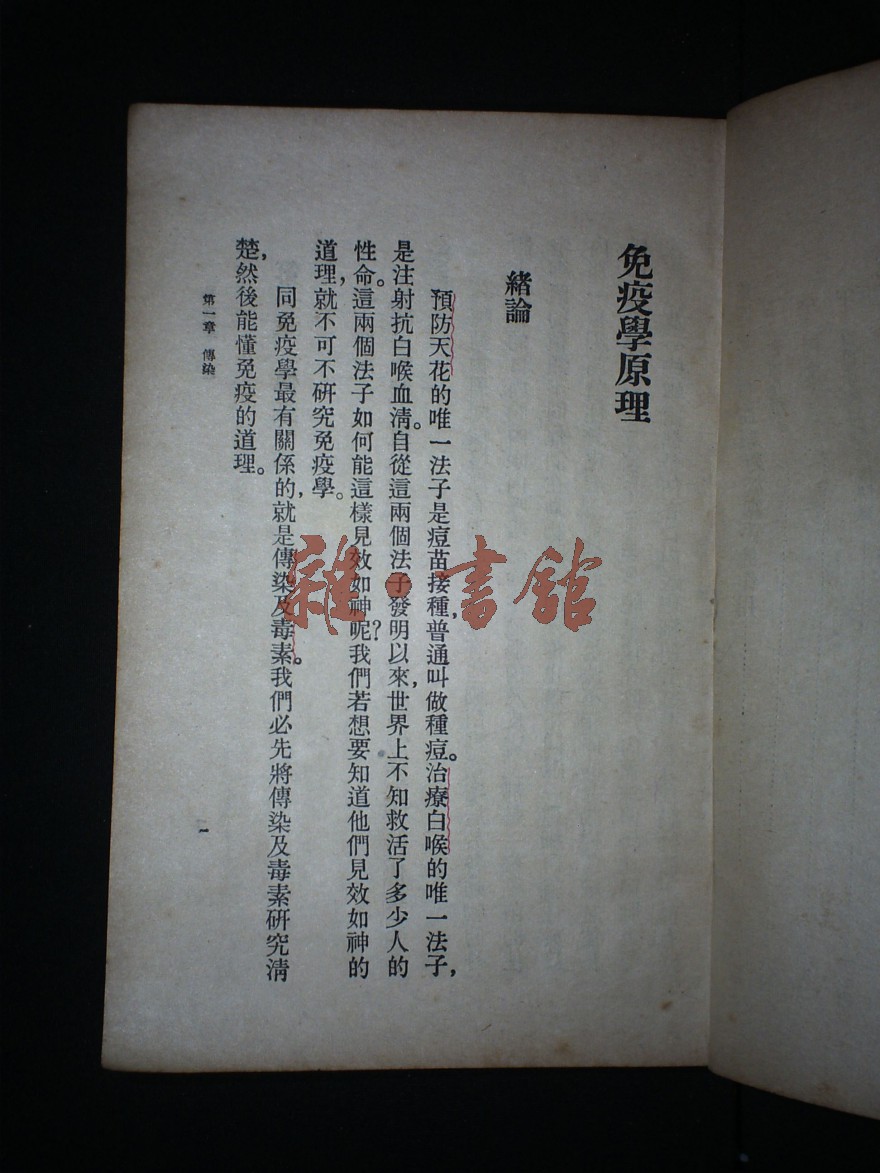 免疫學原理
緒論
預防天花的唯一法子是痘苗接種,普通叫做種痘。治療白喉的唯一法子,
是注射抗白喉血清。自從這兩個法子發明以來,世界上不知救活了多少人的
性命。這兩個法子如何能這樣見效如神呢?我們若想要知道他們見效如神的
道理,就不可不研究免疫學。
同免疫學最有關係的,就是傳染及毒素。我們必先將傳染及毒素研究清
楚,然後能懂免疫的道理。
第一章 傳染
一
雜·書館